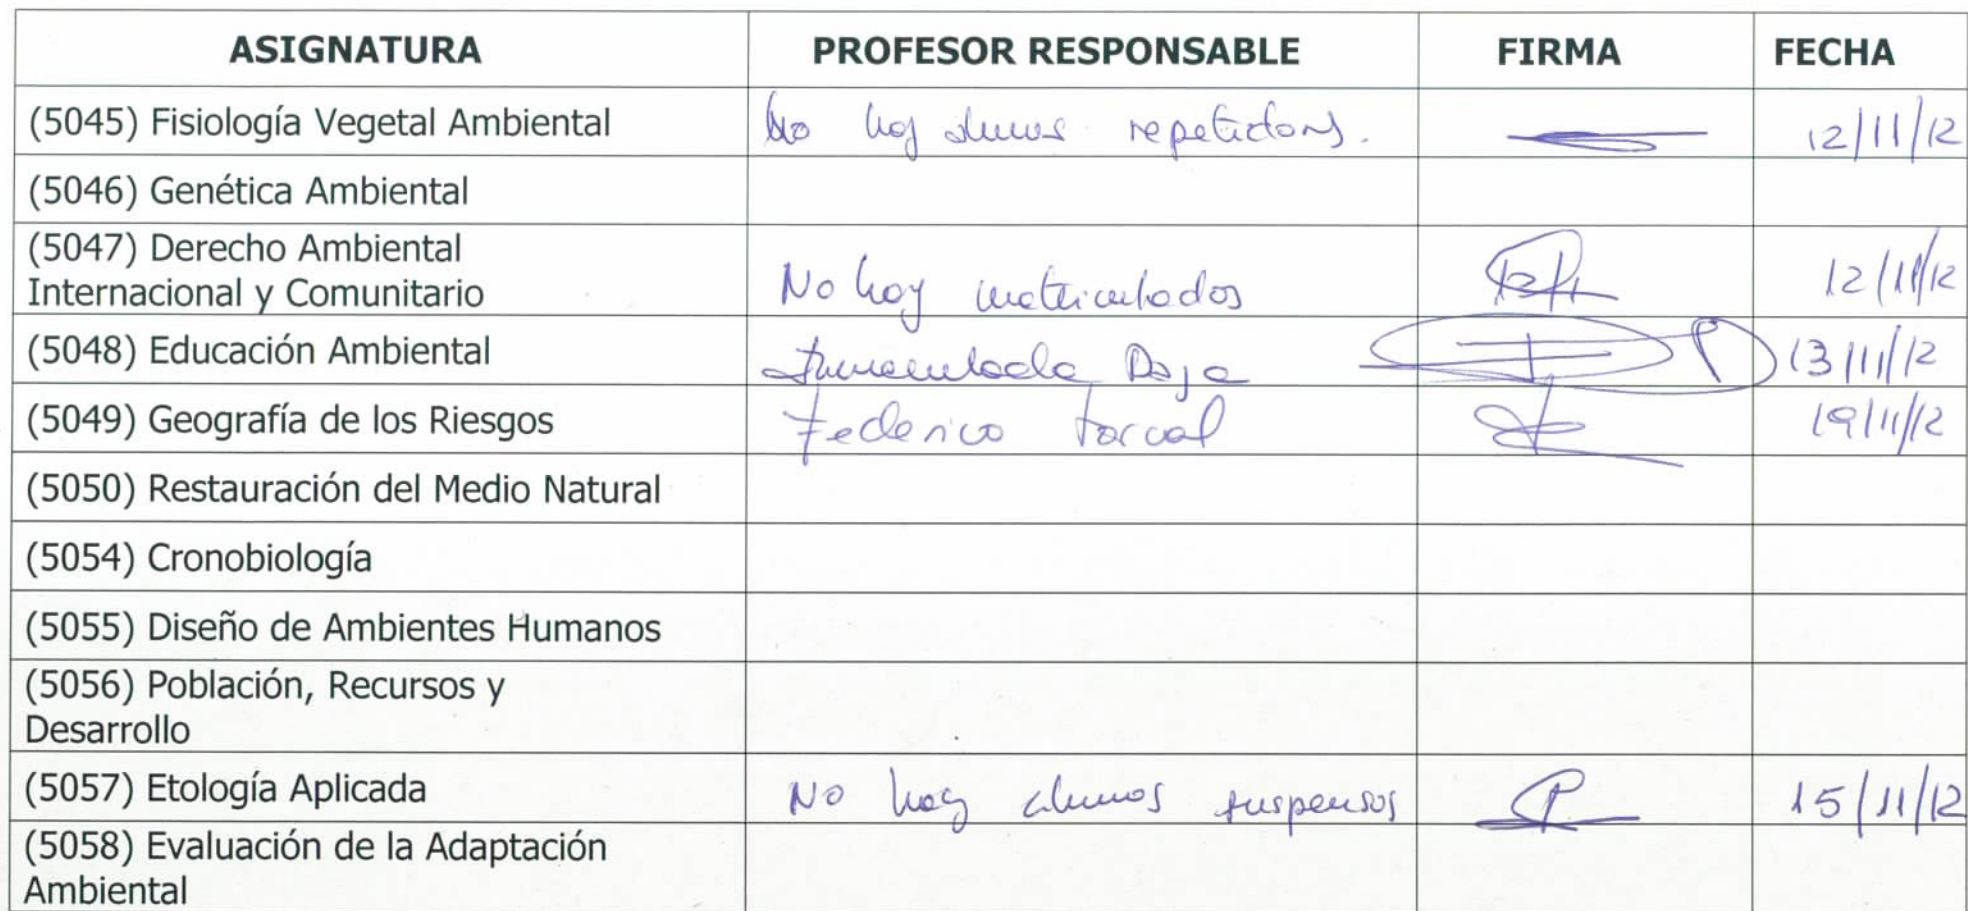 ASIGNATURA PROFESOR RESPONSABLE FIRMA FECHA
(5045) Fisiología Vegetal Ambiental No hay alumnos repetidores. 12/11/12
(5046) Genética Ambiental
(5047) Derecho Ambiental
Internacional y Comunitario No hay matriculados 12/11/12
(5048) Educación Ambiental Inmaculada 13/11/12
(5049) Geografía de los Riesgos Federico 19/11/12
(5050) Restauración del Medio Natural
(5054) Cronobiología
(5055) Diseño de Ambientes Humanos
(5056) Población, Recursos y
Desarrollo
(5057) Etología Aplicada No hay alumnos suspensos 15/11/12
(5058) Evaluación de la Adaptación
Ambiental